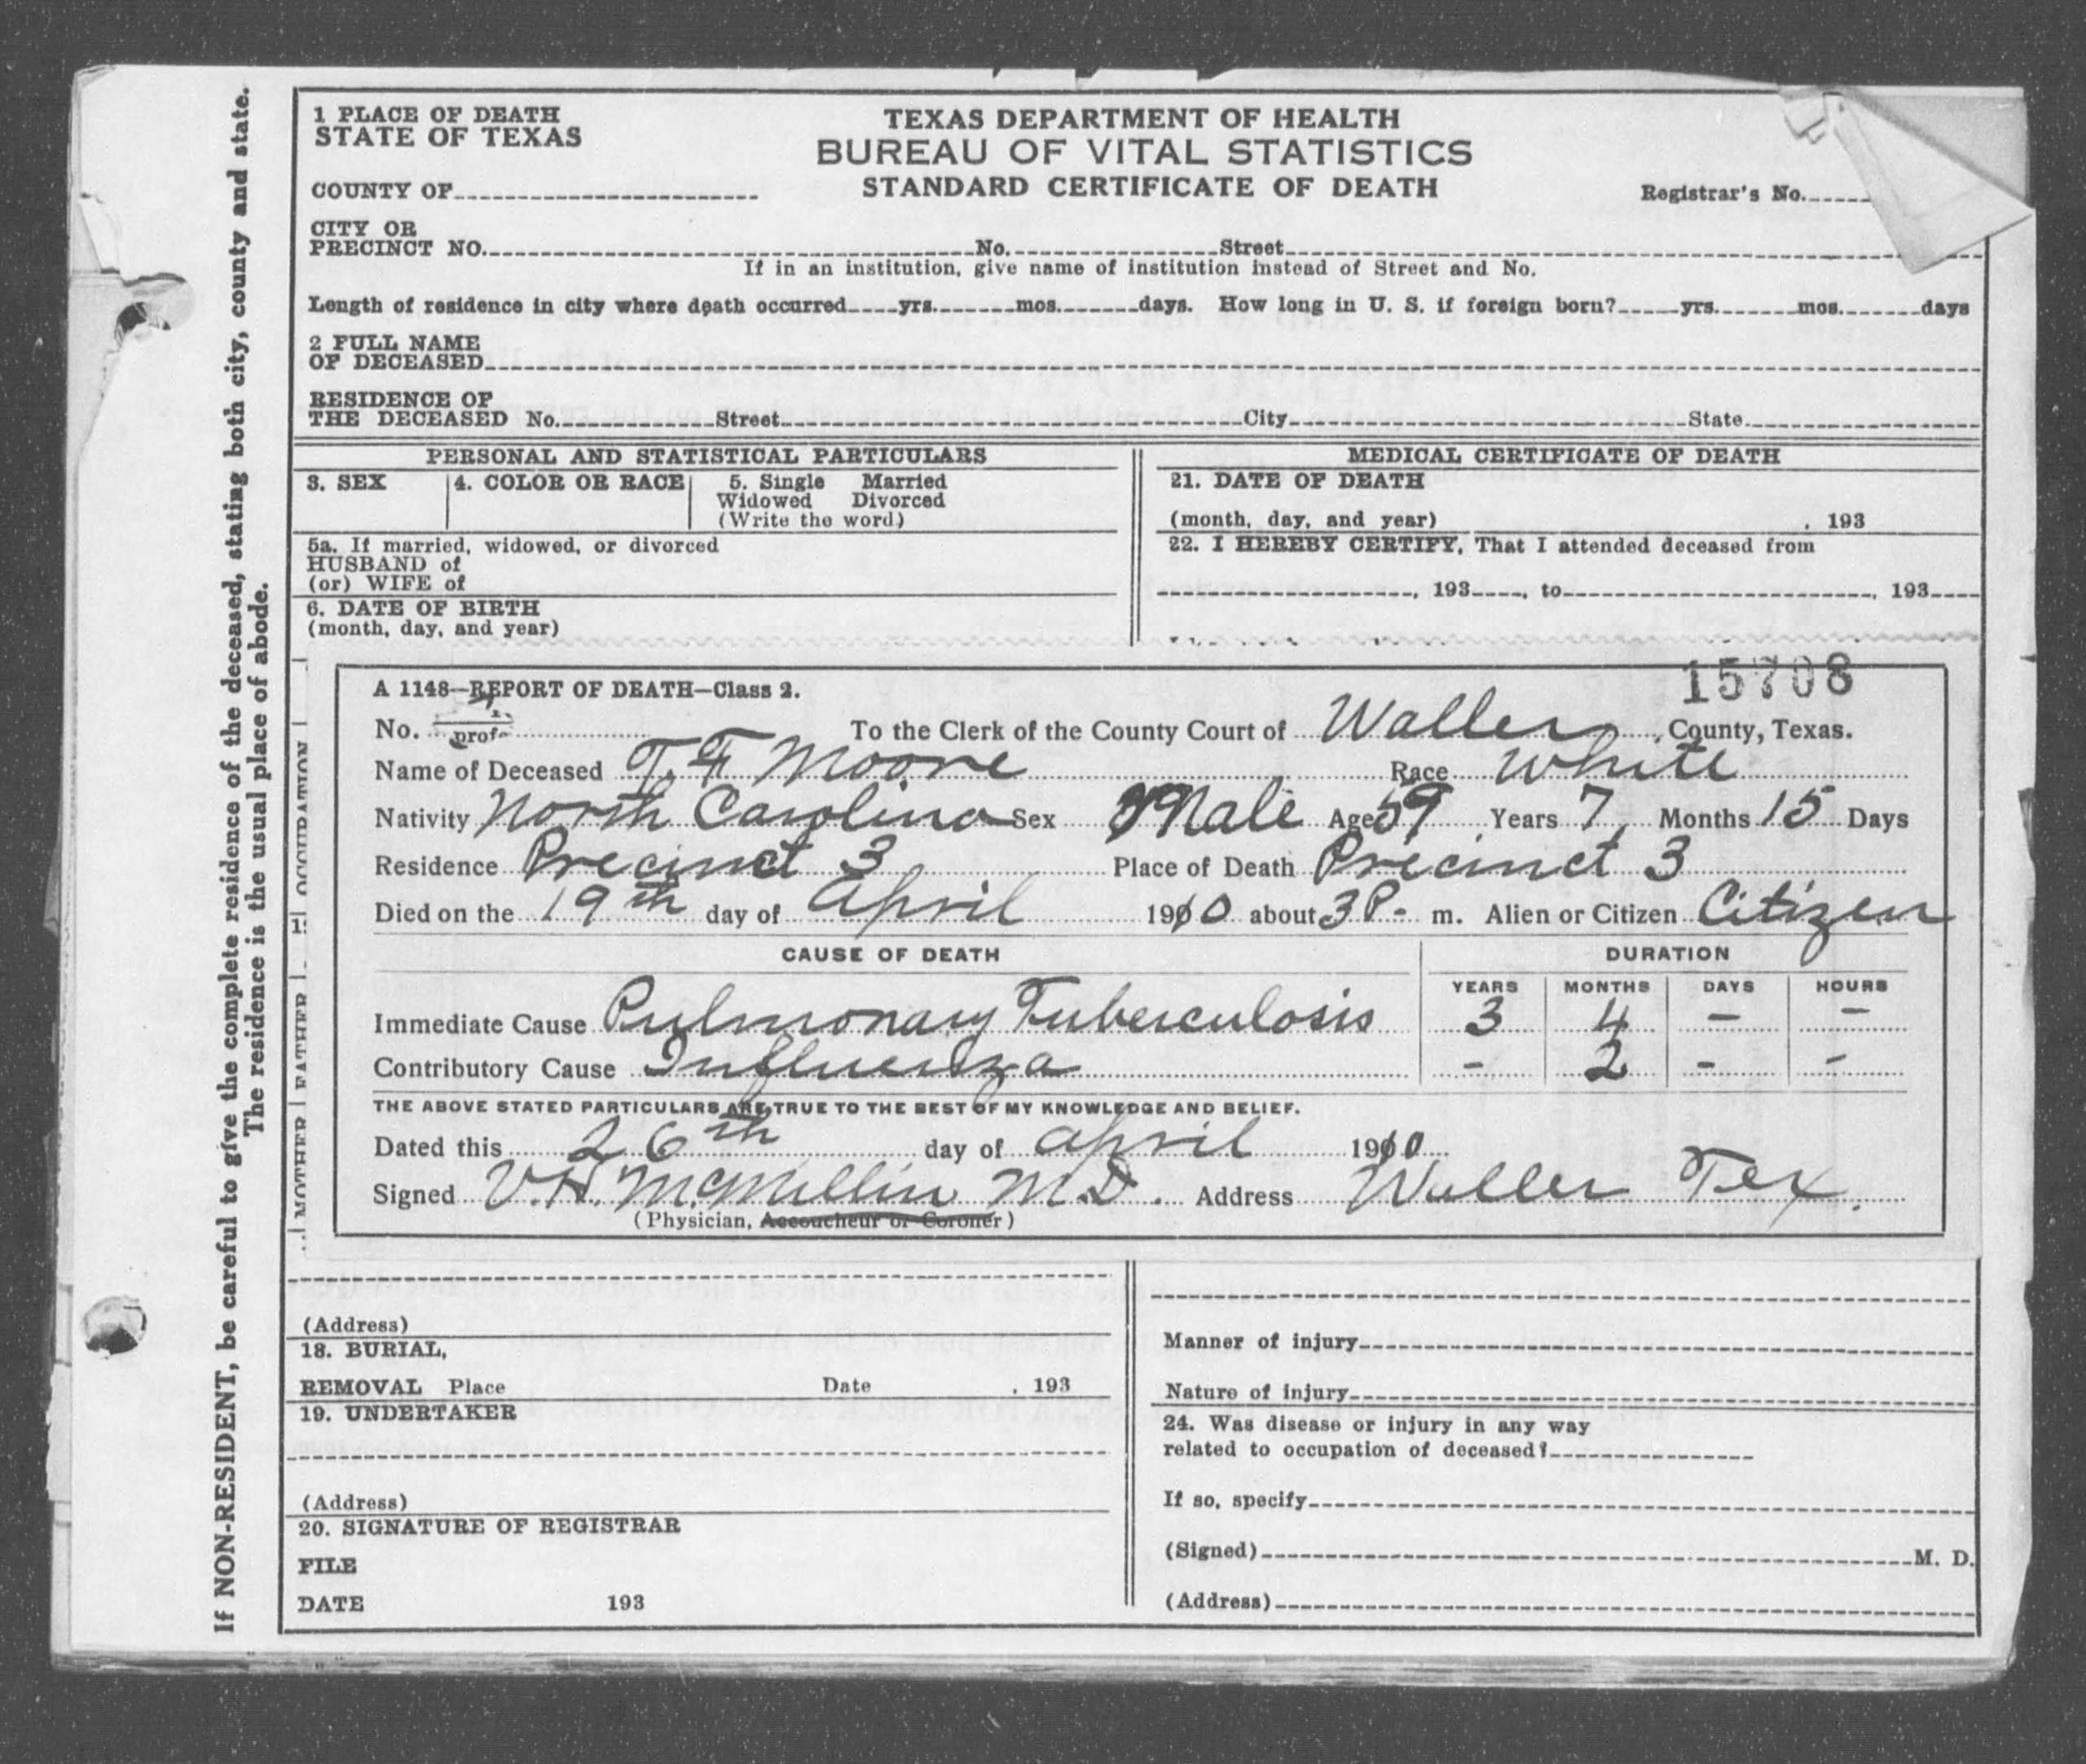 If NON-RESIDENT, be careful to give the complete residence of the deceased, stating both city, county and state.
The residence is the usual place of abode.
1 PLACE OF DEATH
STATE OF TEXAS
TEXAS DEPARTMENT OF HEALTH
BUREAU OF VITAL STATISTICS
STANDARD CERTIFICATE OF DEATH
COUNTY OF
Registrar's No.
CITY OR
PRECINCT NO. No. Street
If in an institution, give name of institution instead of Street and No.
Length of residence in city where death occurred yrs. mos. days. How long in U. S. if foreign born? yrs. mos. days
2 FULL NAME
OF DECEASED
RESIDENCE OF
THE DECEASED No. Street City State
PERSONAL AND STATISTICAL PARTICULARS
3. SEX 4. COLOR OR RACE 5. Single Married
Widowed Divorced
(Write the word)
5a. If married, widowed, or divorced
HUSBAND of
(or) WIFE of
6. DATE OF BIRTH
(month, day, and year)
MEDICAL CERTIFICATE OF DEATH
21. DATE OF DEATH
(month, day, and year) , 193
22. I HEREBY CERTIFY, That I attended deceased from
, 193 , to , 193
OCCUPATION
FATHER
MOTHER
15708
A 1148—REPORT OF DEATH—Class 2.
No. prof To the Clerk of the County Court of Waller, County, Texas.
Name of Deceased T. F. Moore Race White
Nativity North Carolina Sex Male Age 59 Years 7 Months 15 Days
Residence Precinct 3 Place of Death Precinct 3
Died on the 19th day of April 1910 about 3 P. m. Alien or Citizen Citizen
CAUSE OF DEATH DURATION
YEARS MONTHS DAYS HOURS
Immediate Cause Pulmonary Tuberculosis 3 4 - -
Contributory Cause Influenza - 2 - -
THE ABOVE STATED PARTICULARS ARE TRUE TO THE BEST OF MY KNOWLEDGE AND BELIEF.
Dated this 26th day of April 1910
Signed V. H. McMillin M.D. Address Waller Tex.
(Physician, Accoucheur or Coroner)
(Address)
18. BURIAL,
REMOVAL Place Date , 193
19. UNDERTAKER
(Address)
20. SIGNATURE OF REGISTRAR
FILE
DATE 193
Manner of injury
Nature of injury
24. Was disease or injury in any way
related to occupation of deceased?
If so, specify
(Signed) M. D.
(Address)